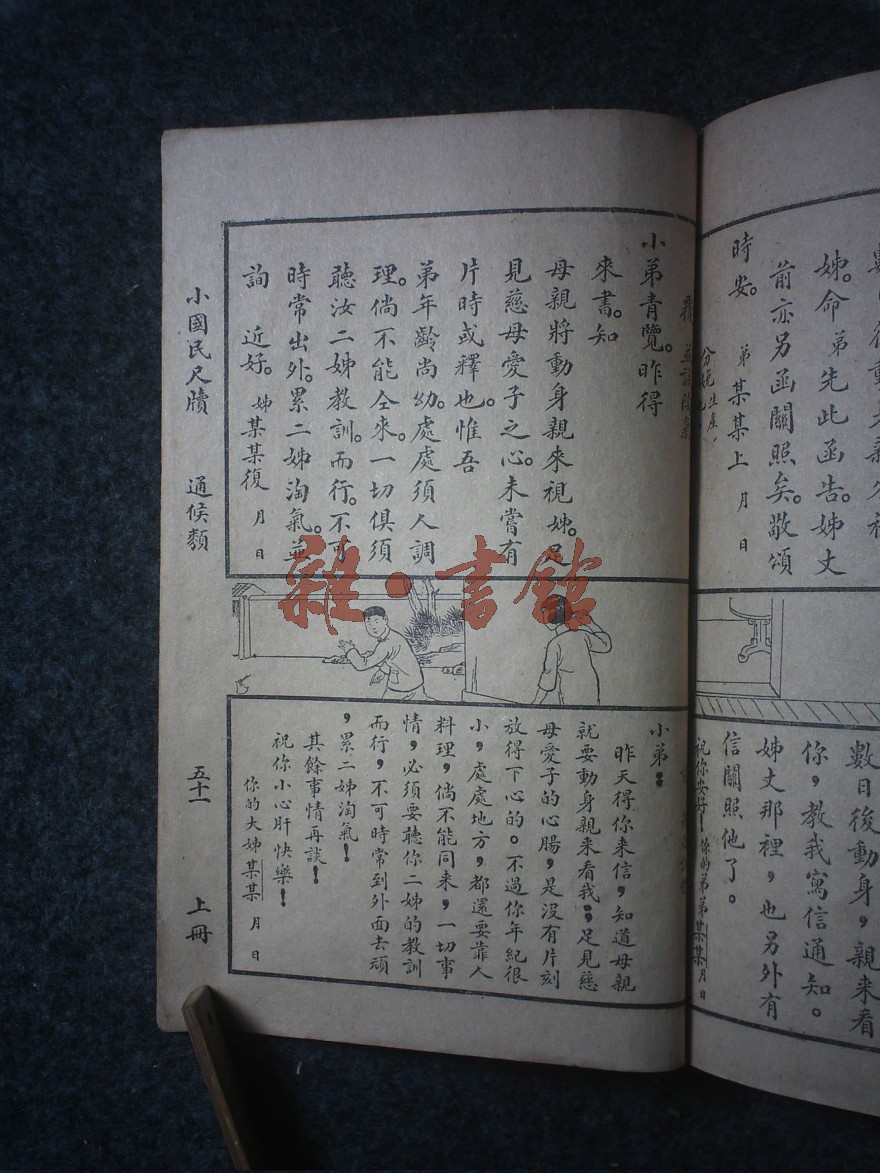 姊。命弟先此函告。姊丈
前亦另函關照矣。敬頌
時安。
弟某某上 月 日
數日後動身，親來看
你，教我寫信通知。
姊丈那裡，也另外有
信關照他了。
祝你安好！你的弟弟某某 月 日
小弟青覽。昨得
來書。知
母親將動身親來視姊。足
見慈母愛子之心。未嘗有
片時或釋也。惟吾
弟年齡尚幼。處處須人調
理。倘不能仝來。一切俱須
聽汝二姊教訓。而行。不可
時常出外。累二姊淘氣。並
詢 近好。 姊某某復 月 日
小弟：
昨天得你来信，知道母親
就要動身親来看我；足見慈
母愛子的心腸，是沒有片刻
放得下心的。不過你年紀很
小，處處地方，都還要靠人
料理，倘不能同来，一切事
情，必須要聽你二姊的教訓
而行，不可時常到外面去頑
，累二姊淘氣！
其餘事情再談！
祝你小心肝快樂！
你的大姊某某 月 日
小國民尺牘 通候類 五十一 上冊
雜·書館